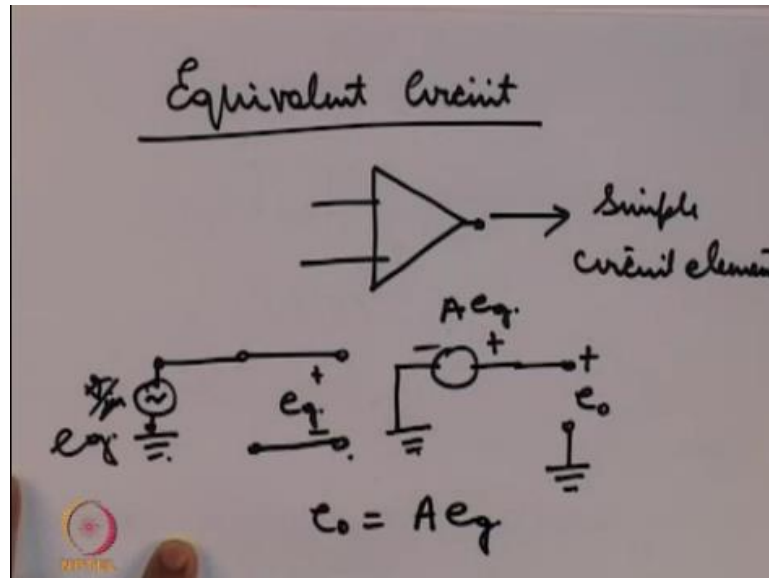 Equivalent Circuit
Simple
circuit element
A eg.
− + +
+
eg. eg. e₀
−
e₀ = A eg
NPTEL